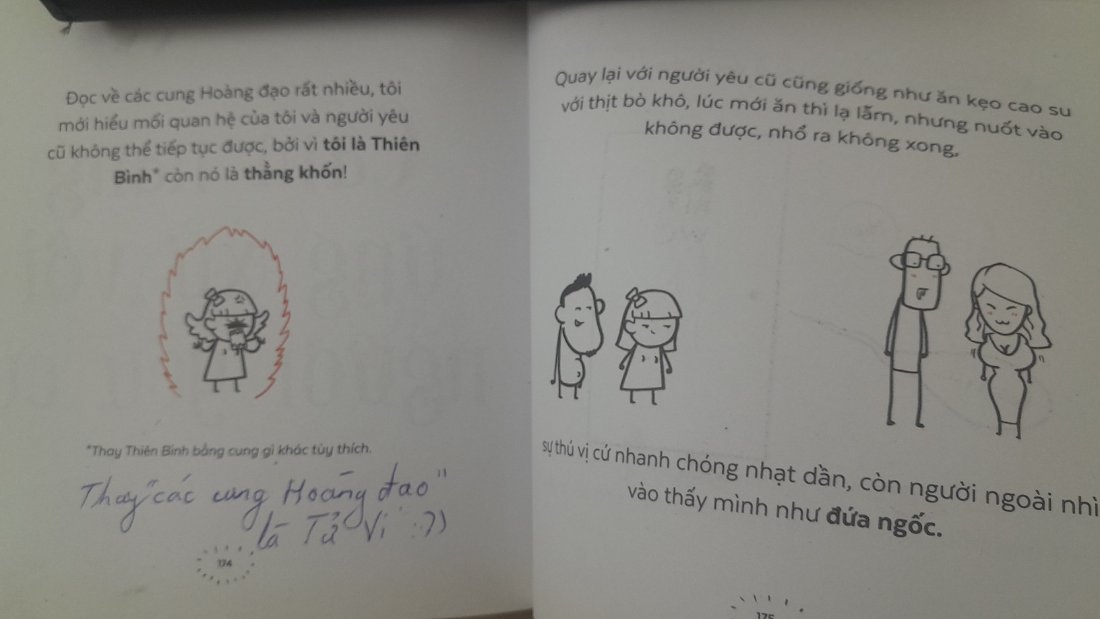 Đọc về các cung Hoàng đạo rất nhiều, tôi
mới hiểu mối quan hệ của tôi và người yêu
cũ không thể tiếp tục được, bởi vì tôi là Thiên
Bình* còn nó là thằng khốn!
*Thay Thiên Bình bằng cung gì khác tùy thích.
Thay "các cung Hoàng đạo"
là Tử Vi :))
174
Quay lại với người yêu cũ cũng giống như ăn kẹo cao su
với thịt bò khô, lúc mới ăn thì lạ lắm, nhưng nuốt vào
không được, nhổ ra không xong,
sự thú vị cứ nhanh chóng nhạt dần, còn người ngoài nhì
vào thấy mình như đứa ngốc.
175